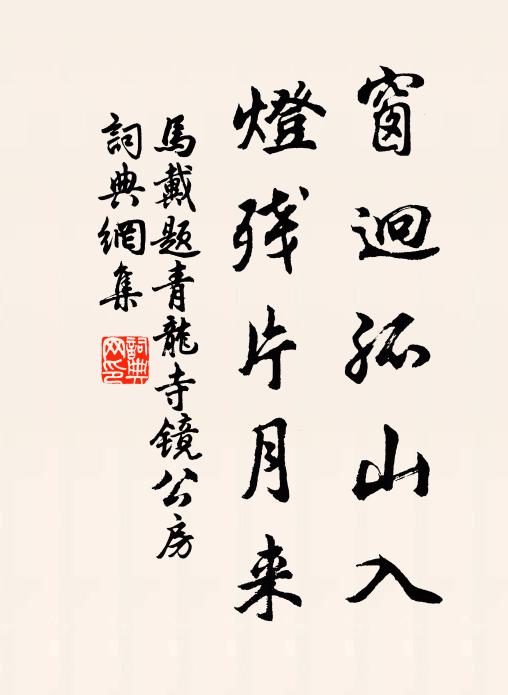 窗迥孤山入
燈残片月来
馬戴题青龍寺镜公房
詞典網集
詞典
网印